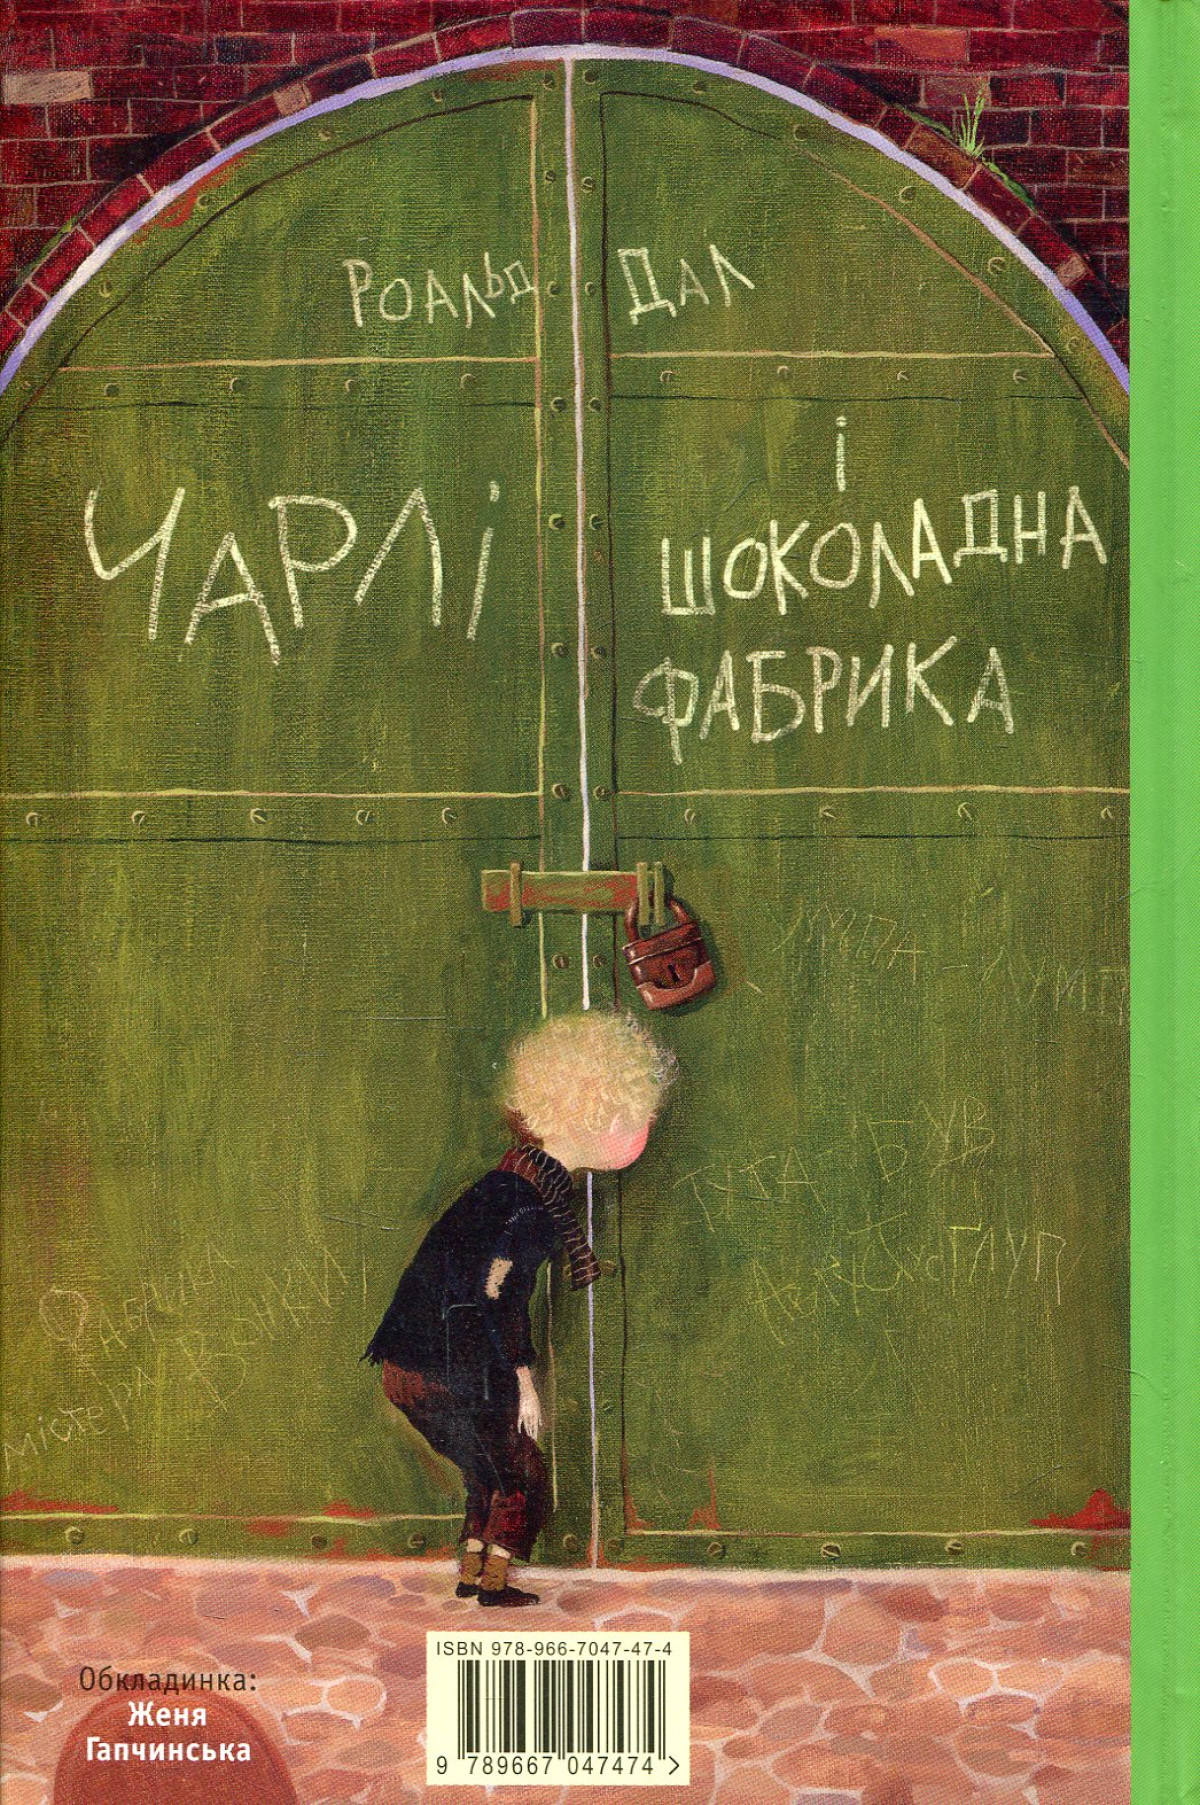 Роальд Дал
Чарлі і
шоколадна
фабрика
Умпа-Лумп
Тута був
Авґустус Глуп
Фабрика
містера Вонки
ISBN 978-966-7047-47-4
9 789667 047474 >
Обкладинка:
Женя
Гапчинська